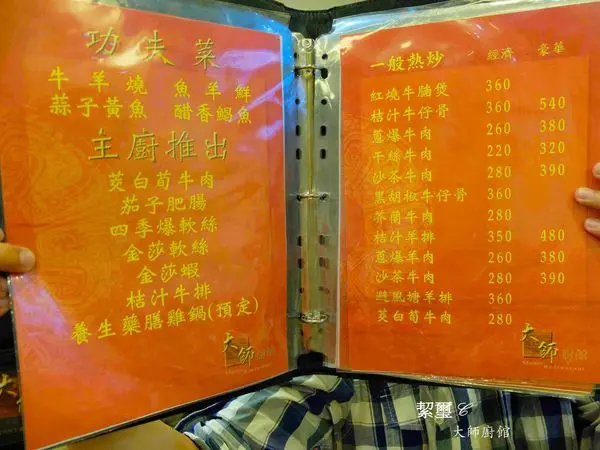 功夫菜
牛羊燒 魚羊鮮
蒜子黃魚 醋香鯧魚
主廚推出
茭白筍牛肉
茄子肥腸
四季爆軟絲
金莎軟絲
金莎蝦
桔汁牛排
養生藥膳雞鍋(預定)
大師廚館
一般熱炒 經濟 豪華
紅燒牛腩煲 360
桔汁牛仔骨 360 540
蔥爆牛肉 260 380
干絲牛肉 220 320
沙茶牛肉 280 390
黑胡椒牛仔骨 360
芥蘭牛肉 280
桔汁羊排 350 480
蔥爆羊肉 260 380
沙茶牛肉 280 390
避風塘羊排 360
茭白筍牛肉 280
大師廚館
絜璽&
大師廚館